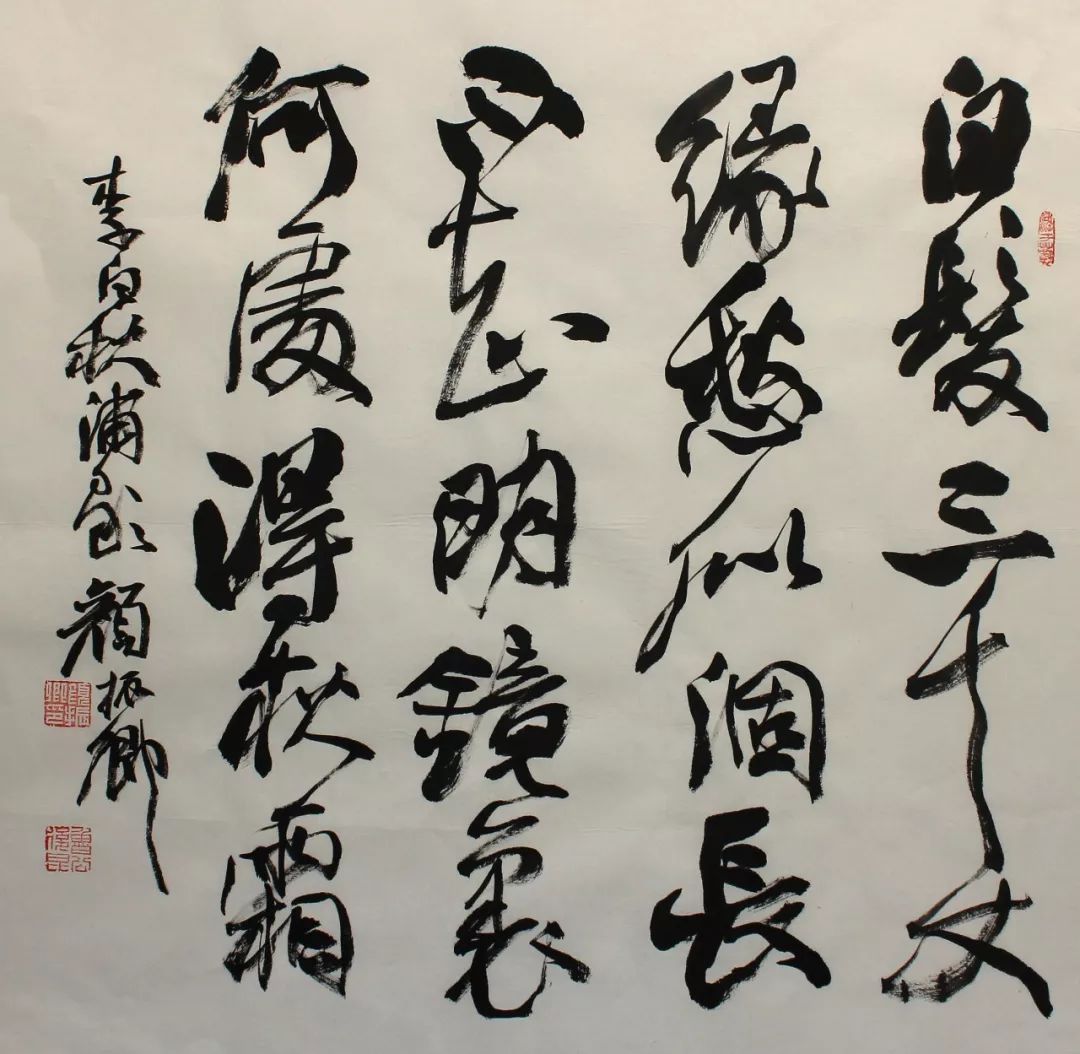 白髮三千丈
緣愁似個長
不知明鏡裏
何處得秋霜
李白秋浦歌 顏振卿
顏振卿印